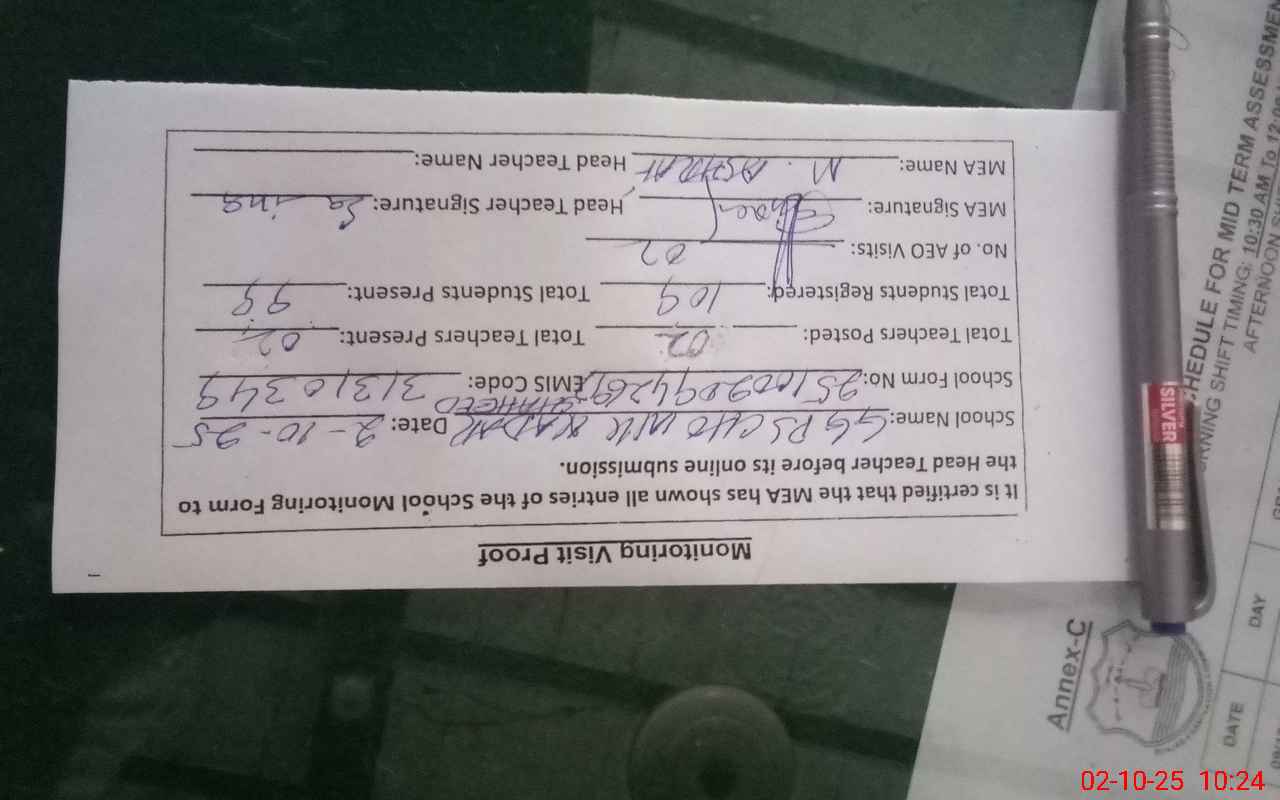 Monitoring Visit Proof
It is certified that the MEA has shown all entries of the School Monitoring Form to
the Head Teacher before its online submission.
School Name: GGPS CHOWK Date: 2-10-25
School Form No: EMIS Code: 31310349
Total Teachers Posted: 02 Total Teachers Present: 02
Total Students Registered: 109 Total Students Present: 99
No. of AEO Visits: 02
MEA Signature: Head Teacher Signature:
MEA Name: M. ASHRAF Head Teacher Name:
Annex-C
SCHEDULE FOR MID TERM ASSESSMEN
MORNING SHIFT TIMING: 10:30 AM To
AFTERNOON
DATE
DAY
SILVER
02-10-25 10:24